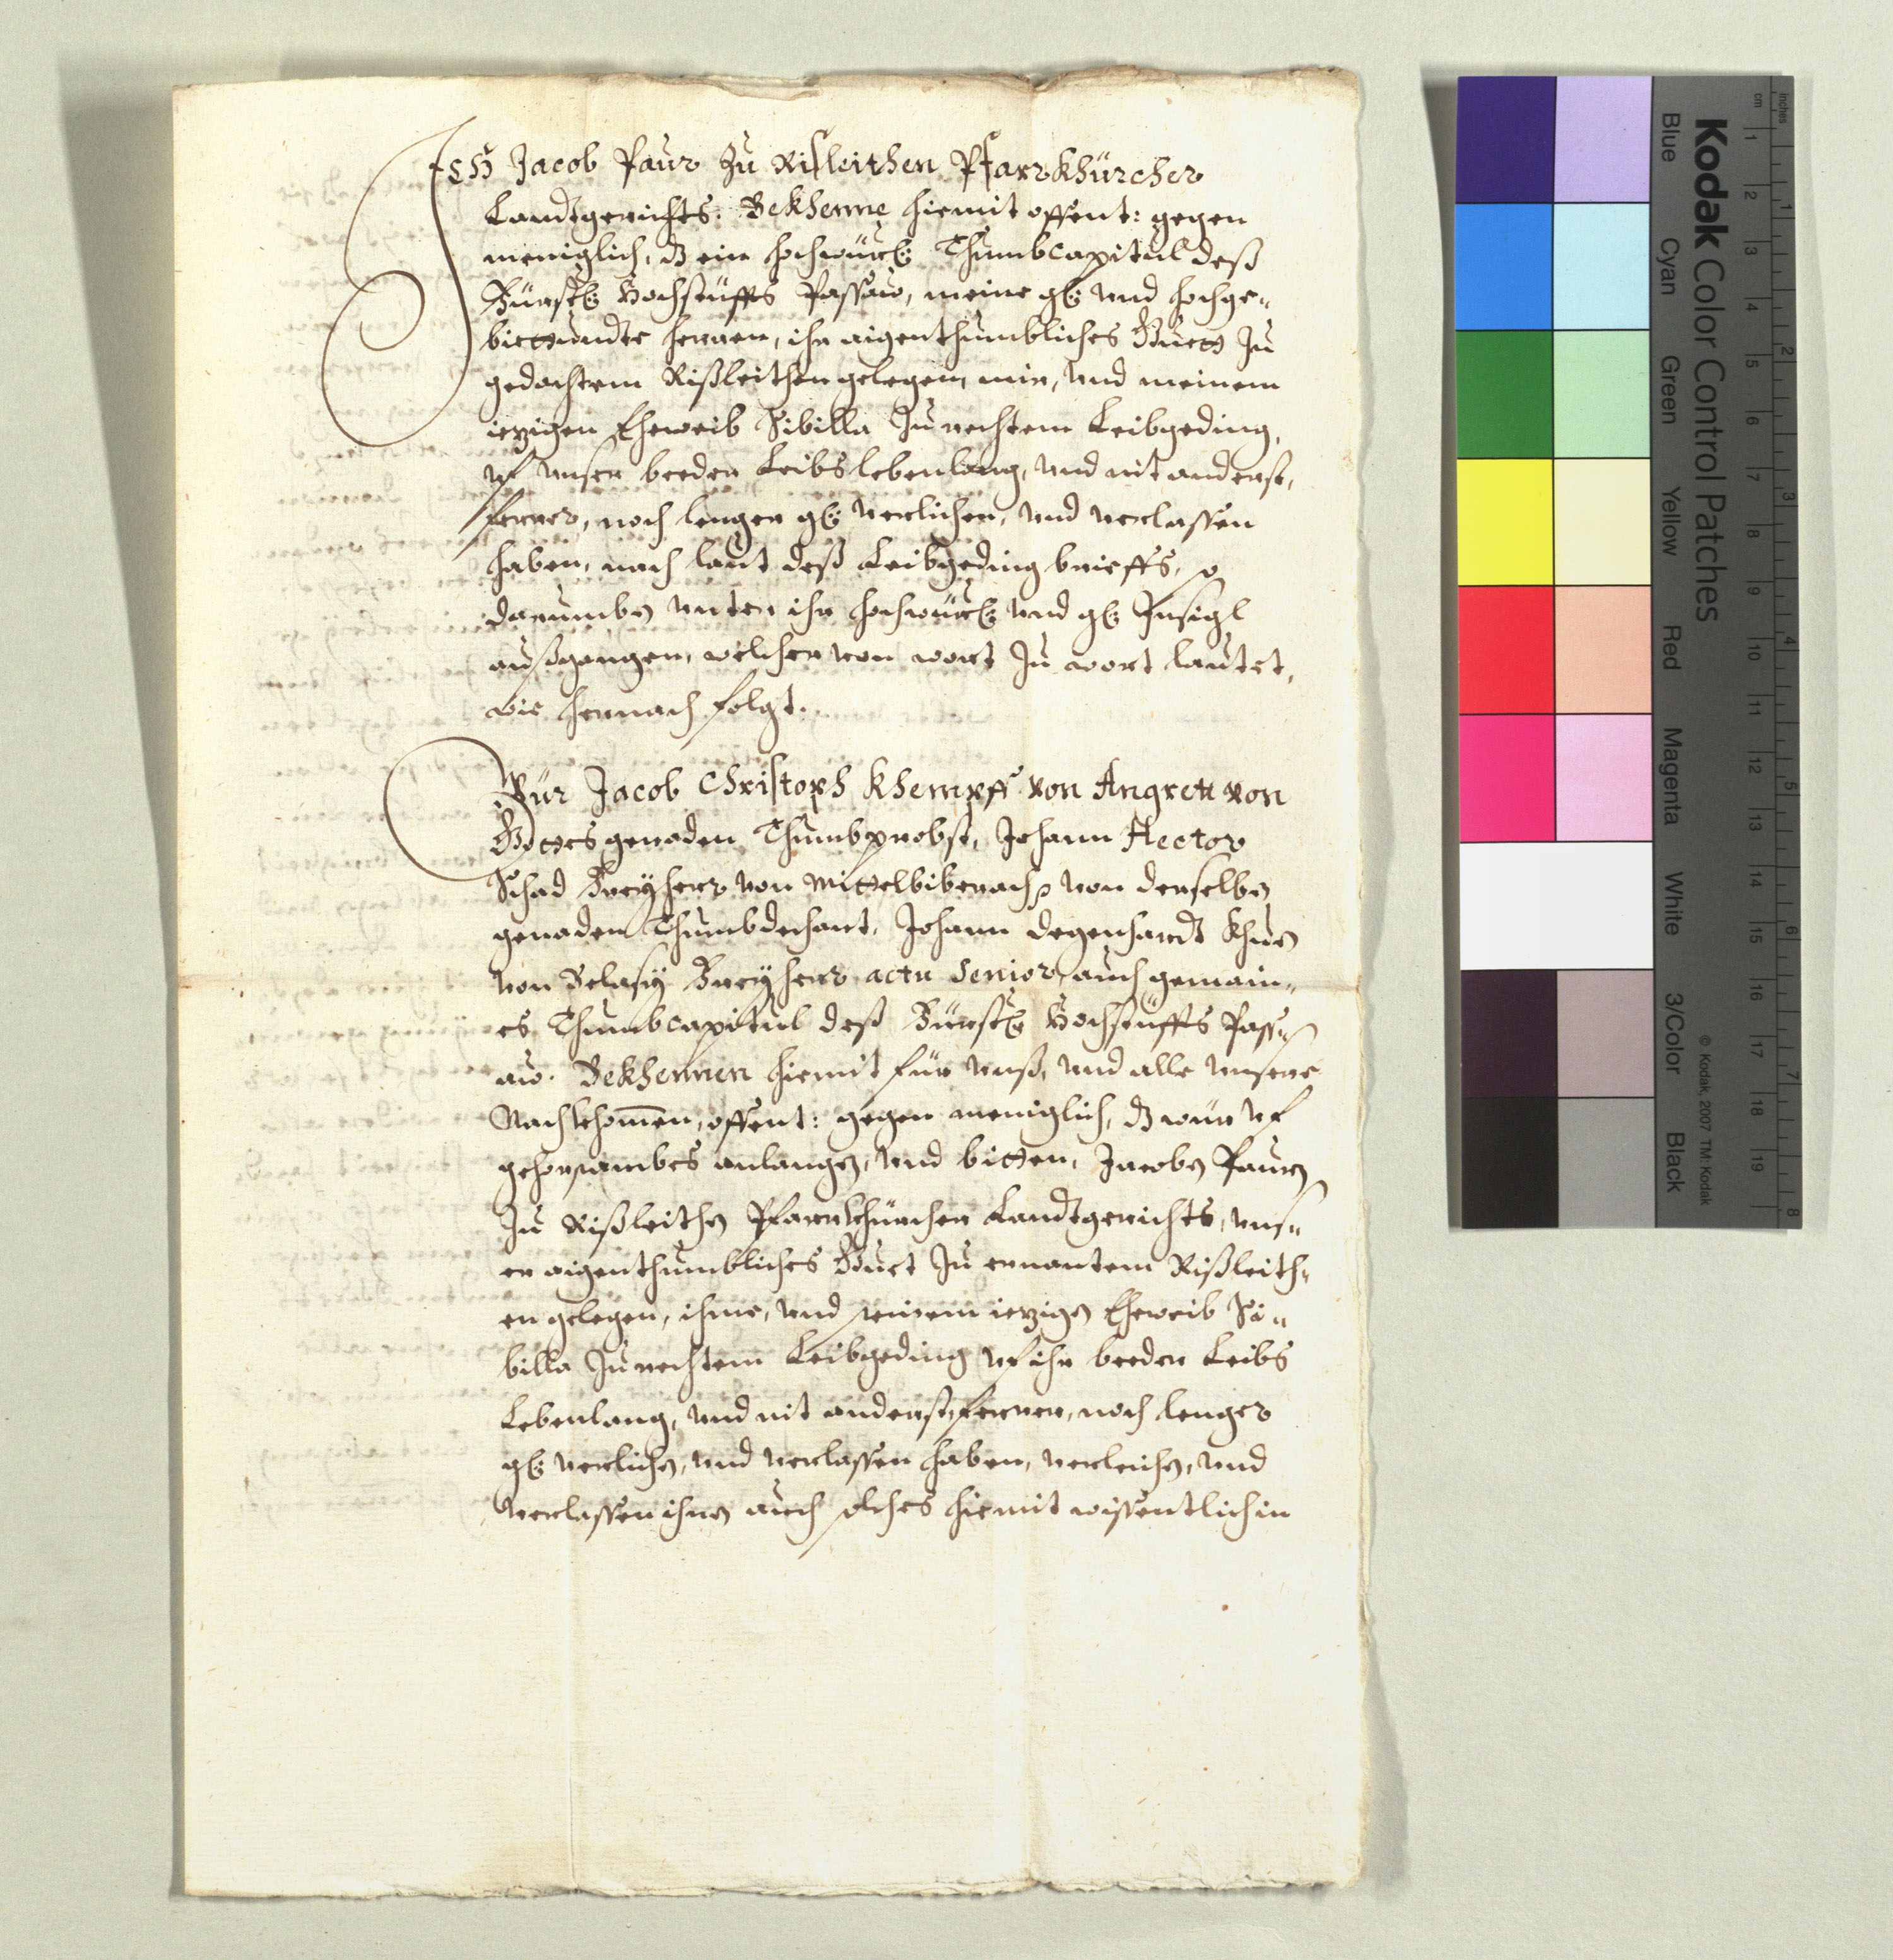 Ich Jacob Paur zu Risleithen Pfarrkhürcher
Landtgerichts. Bekhenne hiemit offent: gegen
meniglich, dz ein hochwürd: Thumbcapitul deß
Fürstl: Hochstüffts Passaw, meine gd: und hochge„
biettundte herren, ihr aigenthumbliches Guett zu
gedachtem Rißleithen gelegen, mir, und meinem
iezigen Eheweib Sibilla zu rechtem Leibgeding,
uf unser beeder Leibs lebenlang, und nit anderst,
ferrer, noch lenger gd: verlichen, und verlassen
haben, nach laut deß Leibgeding brieffs, so
darumben unter ihr hochwürd: und gd: Insigl
außgangen, welcher von wort zu wort lautet,
wie hernach folgt.
Wür Jacob Christoph Khempff von Angrett von
Gottes genaden Thumbprobst, Johann Hector
Schad Freyherr von Mittelbiberach von derselben
genaden Thumbdechant, Johann Degenhardt Khuen
von Belasy Freyherr actu Senior, auch gemain„
es Thumbcapitul deß Fürstl: Hochstüffts Pass„
aw. Bekhennen hiemit für unß, und alle unsere
Nachkhom̅en, offent: gegen meniglich, dz wür uf
gehorsambes anlangen, und bitten, Jacoben Paurn
zu Rißleithen Pfarrkhürcher Landtgerichts, uns„
er aigenthumbliches Guet zu ernantem Rißleith„
en gelegen, ihme, und seinem iezigen Eheweib Si„
billa zu rechtem Leibgeding uf ihr beeder Leibs
Lebenlang, und nit anderst, ferrer, noch lenger
gd: verlichen, und verlassen haben, verleichen, und
verlassen ihnen auch solches hiemit wissentlich in
Kodak Color Control Patches
Blue
Cyan
Green
Yellow
Red
Magenta
White
3/Color
Black
© Kodak, 2007 TM: Kodak
cm 1 2 3 4 5 6 7 8 9 10 11 12 13 14 15 16 17 18 19
inches 1 2 3 4 5 6 7 8